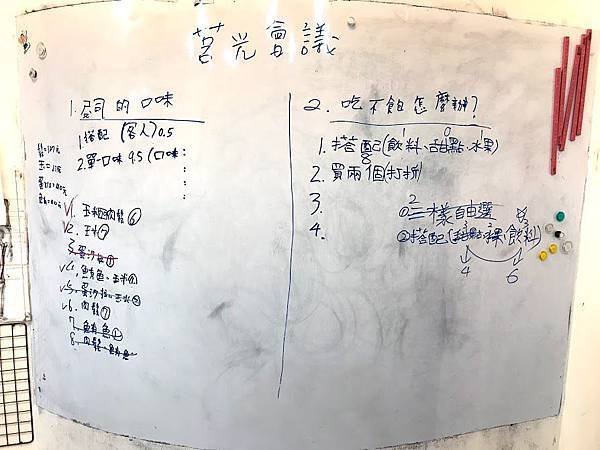 茗光會議
1. 司的口味
1. 搭配(客人)0.5
2. 單一口味 9.5(口味:
√1. 玉米 肉鬆⑥
√2. 玉米
3. 蛋沙拉①
√4. 鮪魚、玉米
√5. 蛋沙拉、玉米
√6. 肉鬆⑦
7. 鮪魚①
8. 肉鬆、鮪魚
2. 吃不飽怎麼辦?
1. 搭配(飲料、甜點、水果)
1 0 1
8
2. 買兩個(打折)
3.
4.
2
①三樣自由選
②搭配(甜點 飲料)
4 6